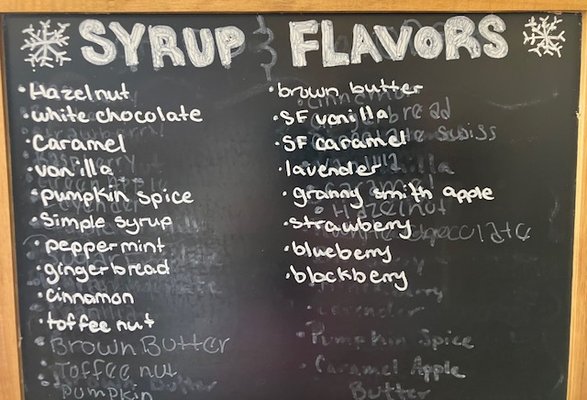 SYRUP FLAVORS
• Hazelnut
• white chocolate
• Caramel
• vanilla
• pumpkin spice
• Simple syrup
• peppermint
• gingerbread
• cinnamon
• toffee nut
Brown Butter
Toffee nut
Pumpkin
• brown butter
• SF vanilla
• SF caramel
• lavender
• granny smith apple
• strawberry
• blueberry
• blackberry
Lavender
• Pumpkin Spice
• Caramel Apple
Butter